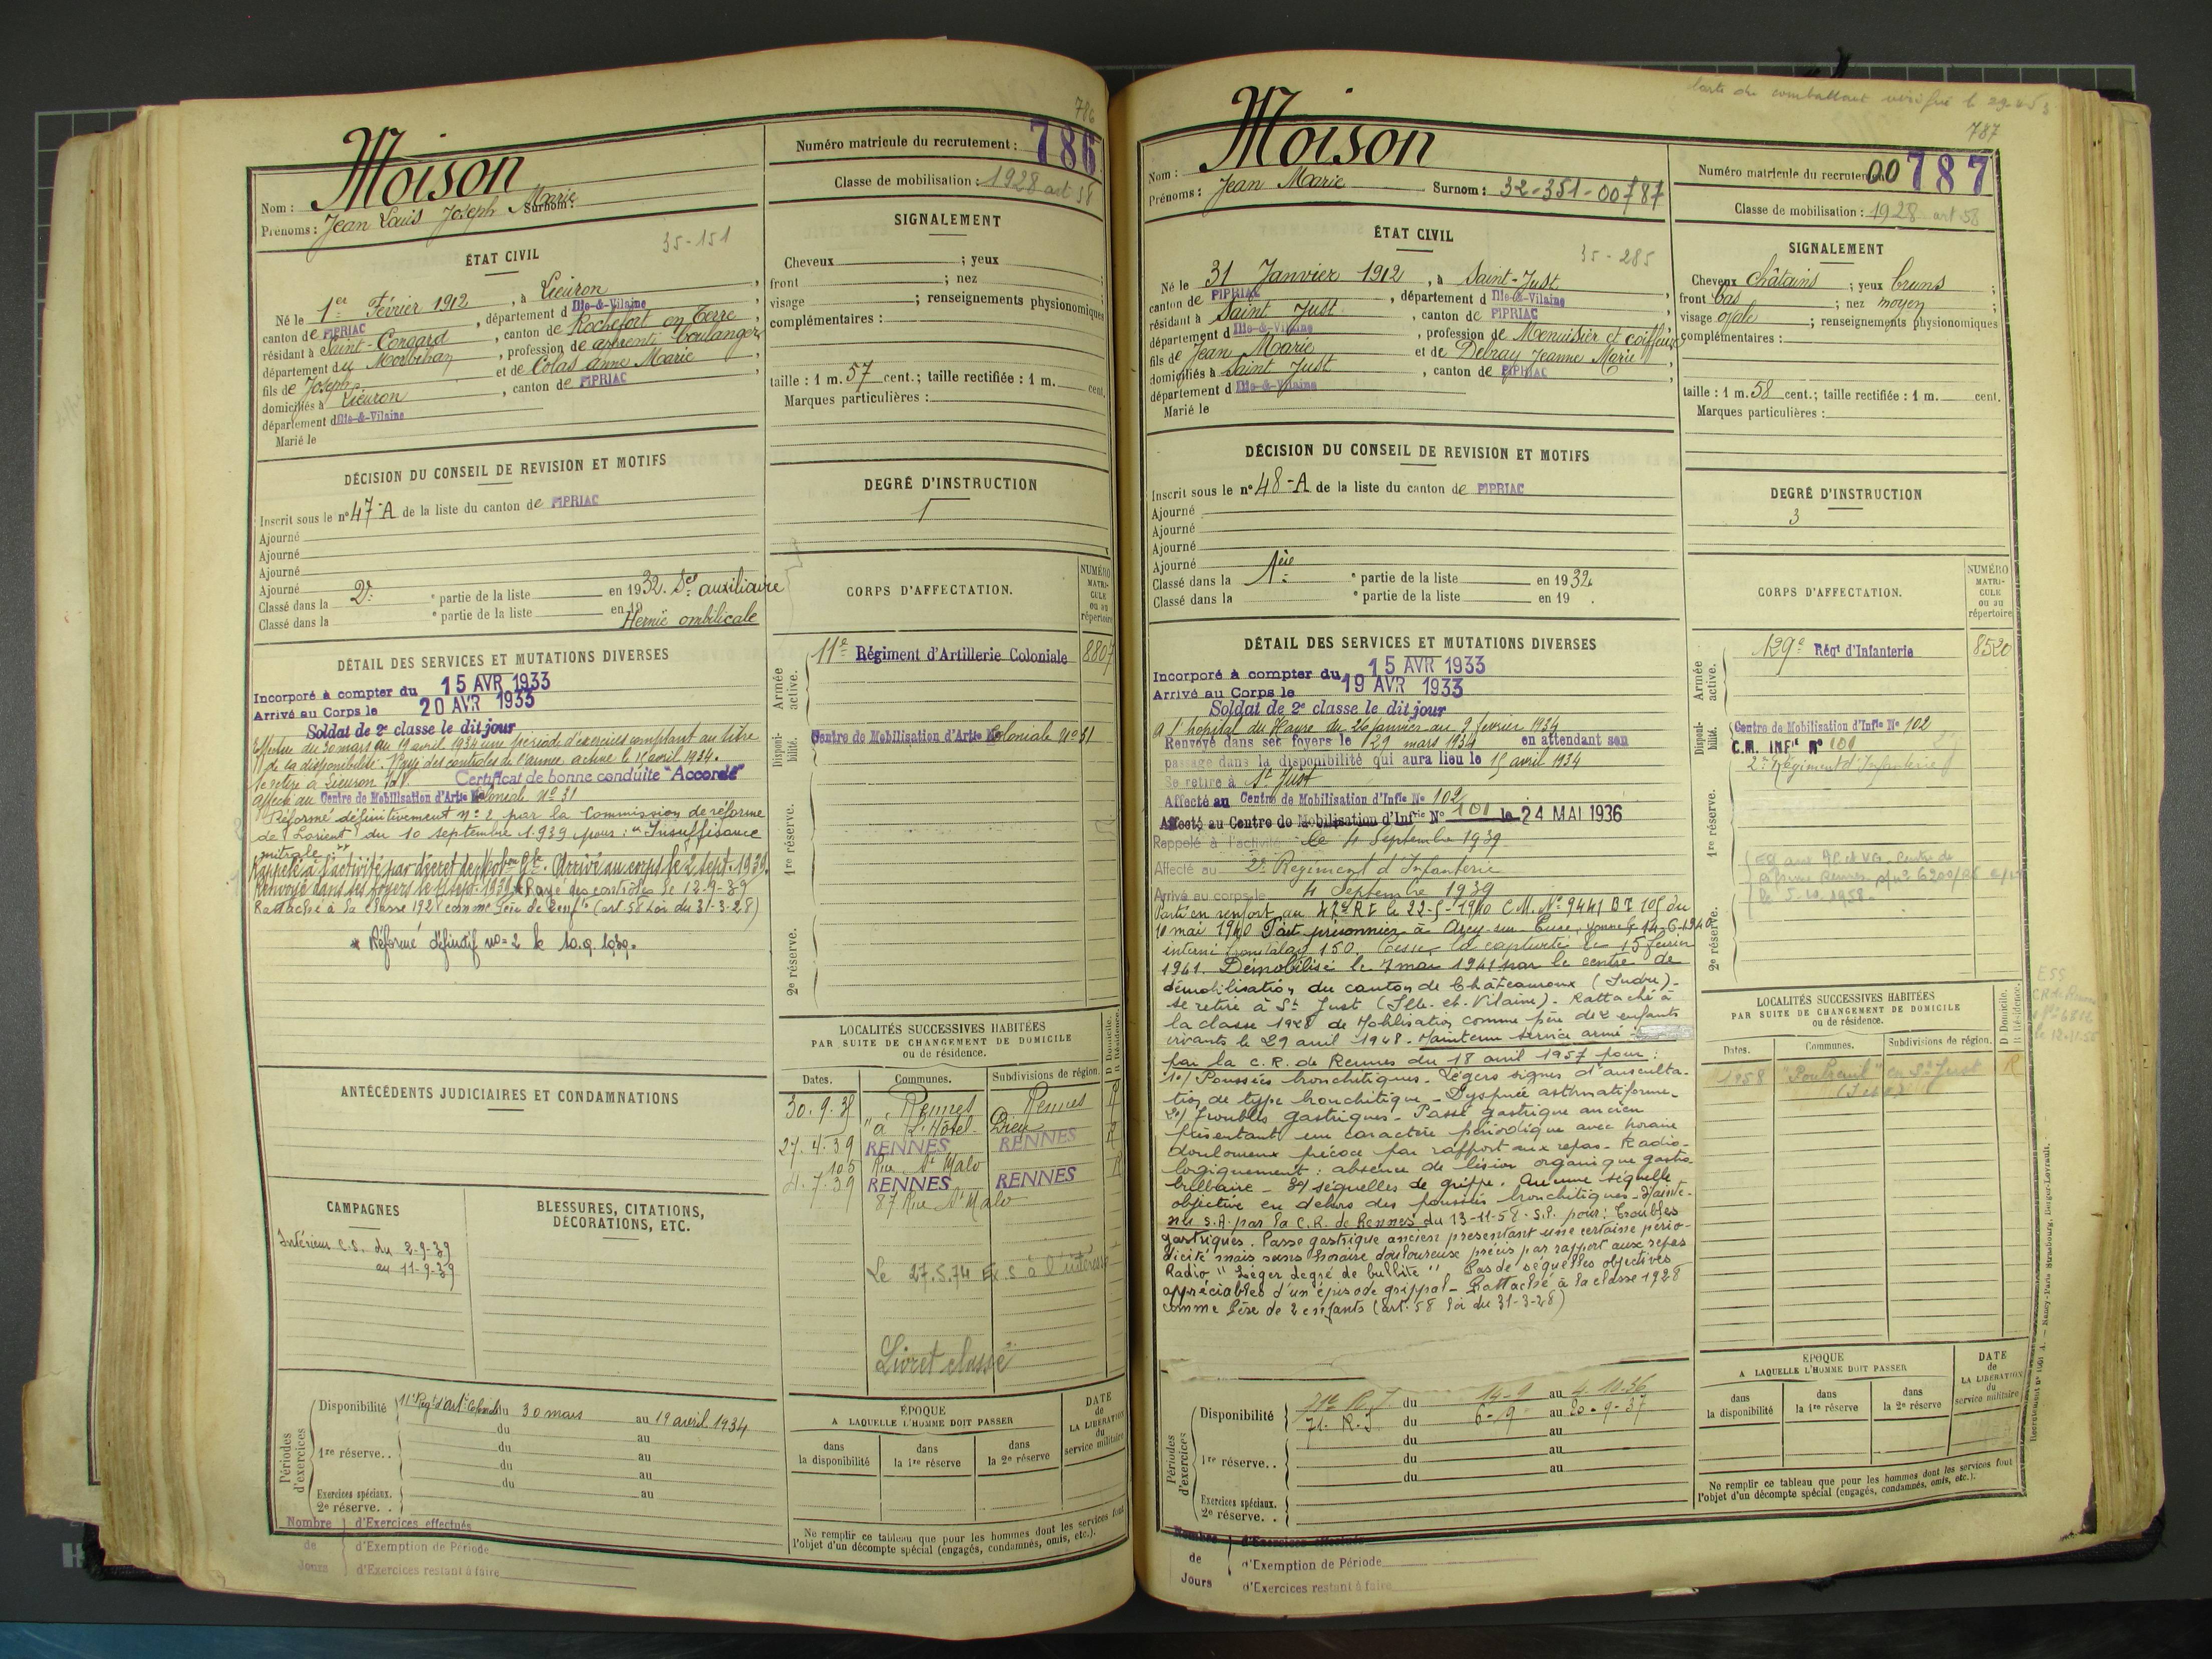 786
Moison
Nom :
Prénoms : Jean Louis Joseph Marie
Surnom :
Numéro matricule du recrutement : 786
Classe de mobilisation : 1928 art 58
ÉTAT CIVIL
35-151
Né le 1er Février 1912, à Lieuron,
canton de PIPRIAC, département d Ille-&-Vilaine,
résidant à Saint-Congard, canton de Rochefort en Terre,
département du Morbihan, profession de apprenti boulanger,
fils de Joseph et de Colas Anne Marie,
domiciliés à Lieuron, canton de PIPRIAC,
département d Ille-&-Vilaine
Marié le
SIGNALEMENT
Cheveux ; yeux ;
front ; nez ;
visage ; renseignements physionomiques
complémentaires :
taille : 1 m. 57 cent.; taille rectifiée : 1 m. cent.
Marques particulières :
DÉCISION DU CONSEIL DE REVISION ET MOTIFS
Inscrit sous le n° 47-A de la liste du canton de PIPRIAC
Ajourné
Ajourné
Ajourné
Ajourné
Classé dans la 2e partie de la liste en 1932. Sce auxiliaire
Classé dans la e partie de la liste en 19
Hernie ombilicale
DEGRÉ D'INSTRUCTION
1
CORPS D'AFFECTATION.
NUMÉRO MATRICULE ou au répertoire
Armée active.
11e Régiment d'Artillerie Coloniale 8807
Disponibilité.
Centre de Mobilisation d'Artie Coloniale No 31
1re réserve.
2e réserve.
DÉTAIL DES SERVICES ET MUTATIONS DIVERSES
Incorporé à compter du 15 AVR 1933
Arrivé au Corps le 20 AVR 1933
Soldat de 2e classe le dit jour
Effectue du 30 mars au 19 avril 1934 une période d'exercices comptant au titre
de la disponibilité. Rayé des contrôles de l'armée active le 15 avril 1934.
Se retire à Lieuron I&V. Certificat de bonne conduite "Accordé"
Affecté au Centre de Mobilisation d'Artie Coloniale No 31
Réformé définitivement n° 2 par la Commission de réforme
de Lorient du 10 septembre 1939 pour : "Insuffisance
mitrale"
Rappelé à l'activité par décret de Mobon Gle. Arrivé au corps le 2 sept. 1939.
Renvoyé dans ses foyers le 11 sept. 1939 * Rayé des contrôles le 12-9-39
Rattaché à la classe 1928 comme père de 2 enfts (art. 58 Loi du 31-3-28)
* Réformé définitif no 2 le 10.9.1939.
ANTÉCÉDENTS JUDICIAIRES ET CONDAMNATIONS
CAMPAGNES
Intérieur C.S. du 2-9-39
au 11-9-39
BLESSURES, CITATIONS,
DÉCORATIONS, ETC.
LOCALITÉS SUCCESSIVES HABITÉES
PAR SUITE DE CHANGEMENT DE DOMICILE
ou de résidence.
Dates. Communes. Subdivisions de région. D. Domicile. R. Résidence.
30.9.38 Rennes Rennes R
"à L'Hôtel-Dieu
27.4.39 RENNES RENNES R
105 Rue St Malo
4.7.39 RENNES RENNES R
87 Rue St Malo
Le 27.5.74 E s à l'intéressé
Livret classé
Périodes d'exercices
Disponibilité 11e Regt d'Art. Coloniale du 30 mars au 19 avril 1934
du au
1re réserve.. du au
du au
du au
Exercices spéciaux.
2e réserve. .
Nombre de Jours
d'Exercices effectués
d'Exemption de Période
d'Exercices restant à faire
ÉPOQUE
A LAQUELLE L'HOMME DOIT PASSER
dans la disponibilité
dans la 1re réserve
dans la 2e réserve
DATE de LA LIBÉRATION du service militaire
Ne remplir ce tableau que pour les hommes dont les services font
l'objet d'un décompte spécial (engagés, condamnés, omis, etc.).
Carte du combattant vérifié le
787
Moison
Nom :
Prénoms : Jean Marie
Surnom : 32-351-00787
Numéro matricule du recrutement 00787
Classe de mobilisation : 1928 art 58
ÉTAT CIVIL
35-285
Né le 31 Janvier 1912, à Saint-Just,
canton de PIPRIAC, département d Ille-&-Vilaine,
résidant à Saint Just, canton de PIPRIAC,
département d Ille-&-Vilaine, profession de Menuisier et coiffeur
fils de Jean Marie et de Debray Jeanne Marie,
domiciliés à Saint Just, canton de PIPRIAC,
département d Ille-&-Vilaine
Marié le
SIGNALEMENT
Cheveux châtains ; yeux bruns ;
front bas ; nez moyen ;
visage ovale ; renseignements physionomiques
complémentaires :
taille : 1 m. 58 cent.; taille rectifiée : 1 m. cent.
Marques particulières :
DÉCISION DU CONSEIL DE REVISION ET MOTIFS
Inscrit sous le n° 48-A de la liste du canton de PIPRIAC
Ajourné
Ajourné
Ajourné
Ajourné
Classé dans la 1ère partie de la liste en 1932
Classé dans la e partie de la liste en 19 .
DEGRÉ D'INSTRUCTION
3
CORPS D'AFFECTATION.
NUMÉRO MATRICULE ou au répertoire
Armée active.
129e Régt d'Infanterie 8520
Disponibilité.
Centre de Mobilisation d'Infie No 102
C.M. INFie No 101
2e Régiment d'Infanterie
1re réserve.
2e réserve.
DÉTAIL DES SERVICES ET MUTATIONS DIVERSES
Incorporé à compter du 15 AVR 1933
Arrivé au Corps le 19 AVR 1933
Soldat de 2e classe le dit jour
A l'hopital du Havre du 26 janvier au 9 février 1934
Renvoyé dans ses foyers le 29 mars 1934 en attendant son
passage dans la disponibilité qui aura lieu le 15 avril 1934
Se retire à St Just
Affecté au Centre de Mobilisation d'Infie No 102
Affecté au Centre de Mobilisation d'Infrie No 101 le 24 MAI 1936
Rappelé à l'activité le 4 Septembre 1939
Affecté au 2e Régiment d'Infanterie
Arrivé au corps le 4 Septembre 1939
Parti en renfort au 42e R I le 22-5-1940 C.M. No 9441 BT 105 du
10 mai 1940 Fait prisonnier à Arcy-sur-Cure, Yonne le 14-6-1940
interné frontstalag 150. Cesse la captivité le 15 février
1941. Démobilisé le 7 mai 1941 par le centre de
démobilisation du canton de Châteauroux (Indre)-
se retire à St Just (Ille-et-Vilaine). Rattaché à
la classe 1928 de Mobilisation comme père de 2 enfants
vivants le 29 avril 1948. Maintenu service armé
par la C.R. de Rennes du 18 avril 1957 pour :
1°/ Poussées bronchitiques. Légers signes d'ausculta-
tion de type bronchitique - Dyspnée asthmatiforme-
2°/ Troubles gastriques - Passé gastrique ancien
présentant un caractère périodique avec horaire
douloureux précoce par rapport aux repas. Radio-
logiquement : absence de lésion organique gastro
bulbaire - 3°/ séquelles de grippe. Aucune séquelle
objective en dehors des poussées bronchitiques - Mainte-
nu S.A. par la C.R. de Rennes du 13-11-58. S.P. pour : Troubles
gastriques. Passé gastrique ancien présentant une certaine pério-
dicité mais sans horaire douloureux précis par rapport aux repas
Radio "Léger degré de bulbite". Pas de séquelles objectives
appréciables d'un épisode grippal - Rattaché à la classe 1928
comme Père de 2 enfants (art. 58 loi du 31-3-28)
LOCALITÉS SUCCESSIVES HABITÉES
PAR SUITE DE CHANGEMENT DE DOMICILE
ou de résidence.
Dates. Communes. Subdivisions de région. D. Domicile. R. Résidence.
1958 "Poubreuil" en St Just R
Périodes d'exercices
Disponibilité 71e R.I. du 14-9 au 4-10-36
71. R.I du 6-9 au 20-9-37
du au
1re réserve.. du au
du au
Exercices spéciaux.
2e réserve. .
Nombre de Jours
d'Exercices effectués
d'Exemption de Période
d'Exercices restant à faire
ÉPOQUE
A LAQUELLE L'HOMME DOIT PASSER
dans la disponibilité
dans la 1re réserve
dans la 2e réserve
DATE de LA LIBÉRATION du service militaire
Ne remplir ce tableau que pour les hommes dont les services font
l'objet d'un décompte spécial (engagés, condamnés, omis, etc.).
Nancy-Paris-Strasbourg, Berger-Levrault.